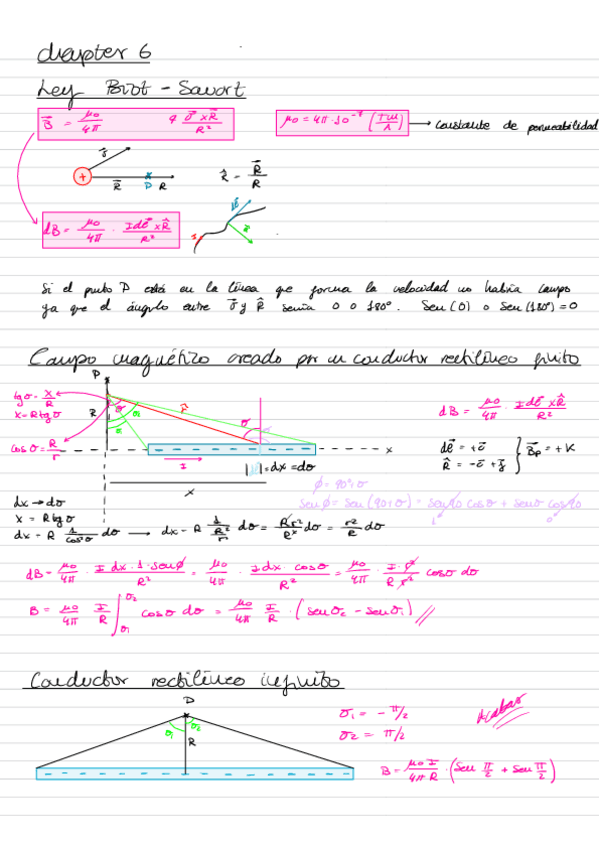 chapter 6
Ley Biot - Savart
B⃗ = μ₀/4π q v⃗ x R̂/R²
μ₀ = 4π · 10⁻⁷ (Tm/A) → constante de permeabilidad
v⃗
R⃗ P R
R̂ = R⃗/R
dB = μ₀/4π · I dℓ⃗ x R̂/R²
Si el punto P está en la línea que forma la velocidad no habría campo
ya que el ángulo entre v⃗ y R̂ sería 0 o 180°. Sen(0) o Sen(180°) = 0
Campo magnético creado por un conductor rectilíneo finito
P
tgσ = x/R
x = R tgσ
R
cosσ = R/r
dB = μ₀/4π · I dℓ⃗ x R̂/R²
dℓ⃗ = +i⃗
R̂ = -i⃗ + j⃗
B⃗p = + K
I
= dx = dσ
x
x
φ = 90° + σ
Sen φ = Sen (90 + σ) = sen 90 cos σ + sen σ cos 90
1 0
dx → dσ
x = R tgσ
dx = R 1/cos²σ dσ → dx = R 1/(R²/r²) dσ = R r²/R² dσ = r²/R dσ
dB = μ₀/4π · I dx · 1 · sen φ/R² = μ₀/4π · I dx cos σ/R² = μ₀/4π · I · r²/R r² cos σ dσ
B = μ₀/4π I/R ∫σ₁^σ₂ cos σ dσ = μ₀/4π I/R · (sen σ₂ - sen σ₁) //
Conductor rectilíneo infinito
P
σ₁ σ₂
R
σ₁ = - π/2
σ₂ = π/2
Acabar
B = μ₀ I/4π R · (Sen π/2 + Sen π/2)